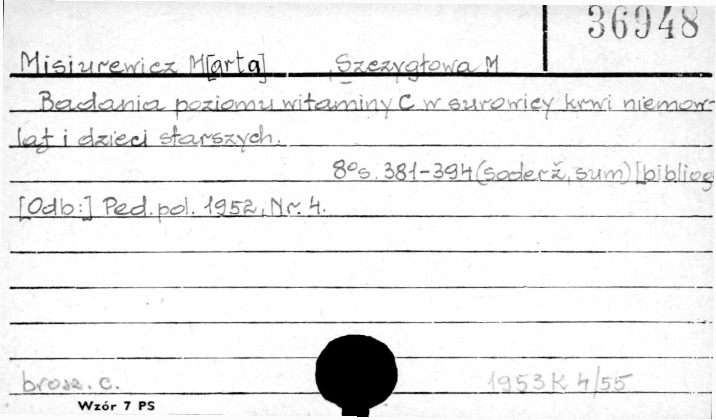 36948
Misiurewicz M[arta] , Szczygłowa M
Badania poziomu witaminy C w surowicy krwi niemow-
ląt i dzieci starszych.
8° s. 381-394 (soderž, sum) [bibliog
[Odb:] Ped. pol. 1952, Nr. 4.
brosz. c. 1953 K 4/55
Wzór 7 PS